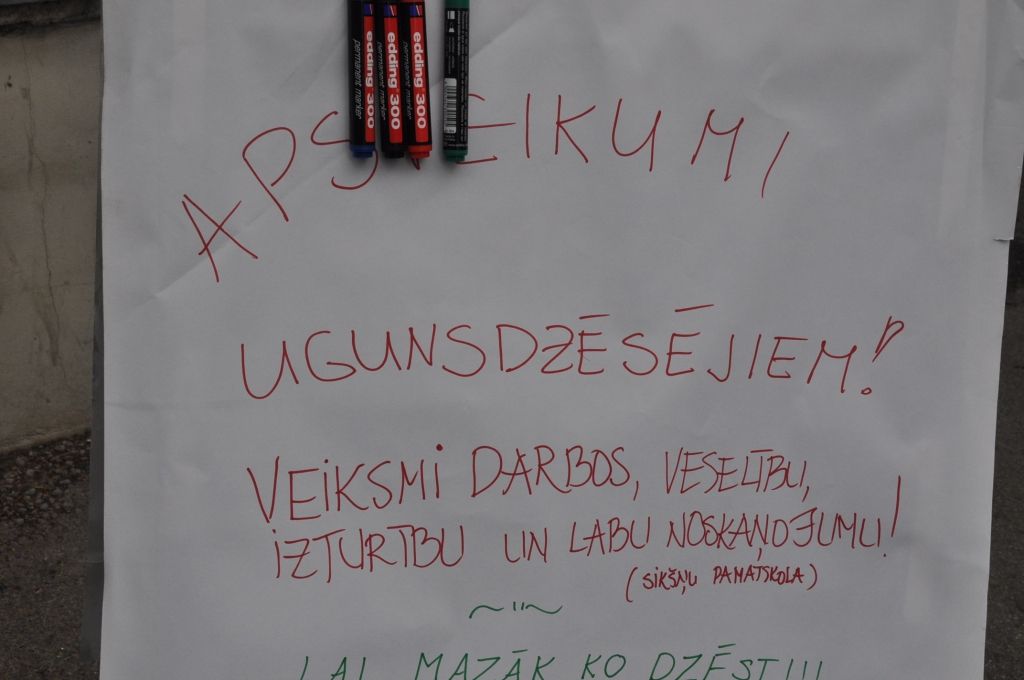 edding 300
permanent marker
edding 300
permanent marker
edding 300
permanent marker
APSVEIKUMI
UGUNSDZĒSĒJIEM!
VEIKSMI DARBOS, VESELĪBU,
IZTURĪBU UN LABU NOSKAŅOJUMU!
(SIKŠŅU PAMATSKOLA)
~ " ~
LAI MAZĀK KO DZĒST!!!